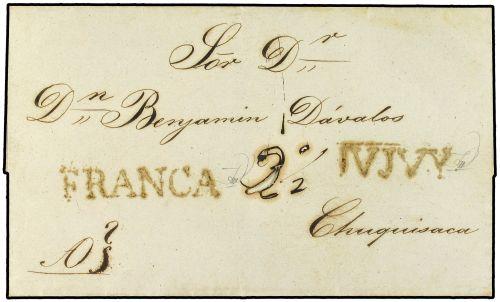 Sōr Dr
Dn Benjamin Dávalos
FRANCA 2½ IVIVY
Chuquisaca